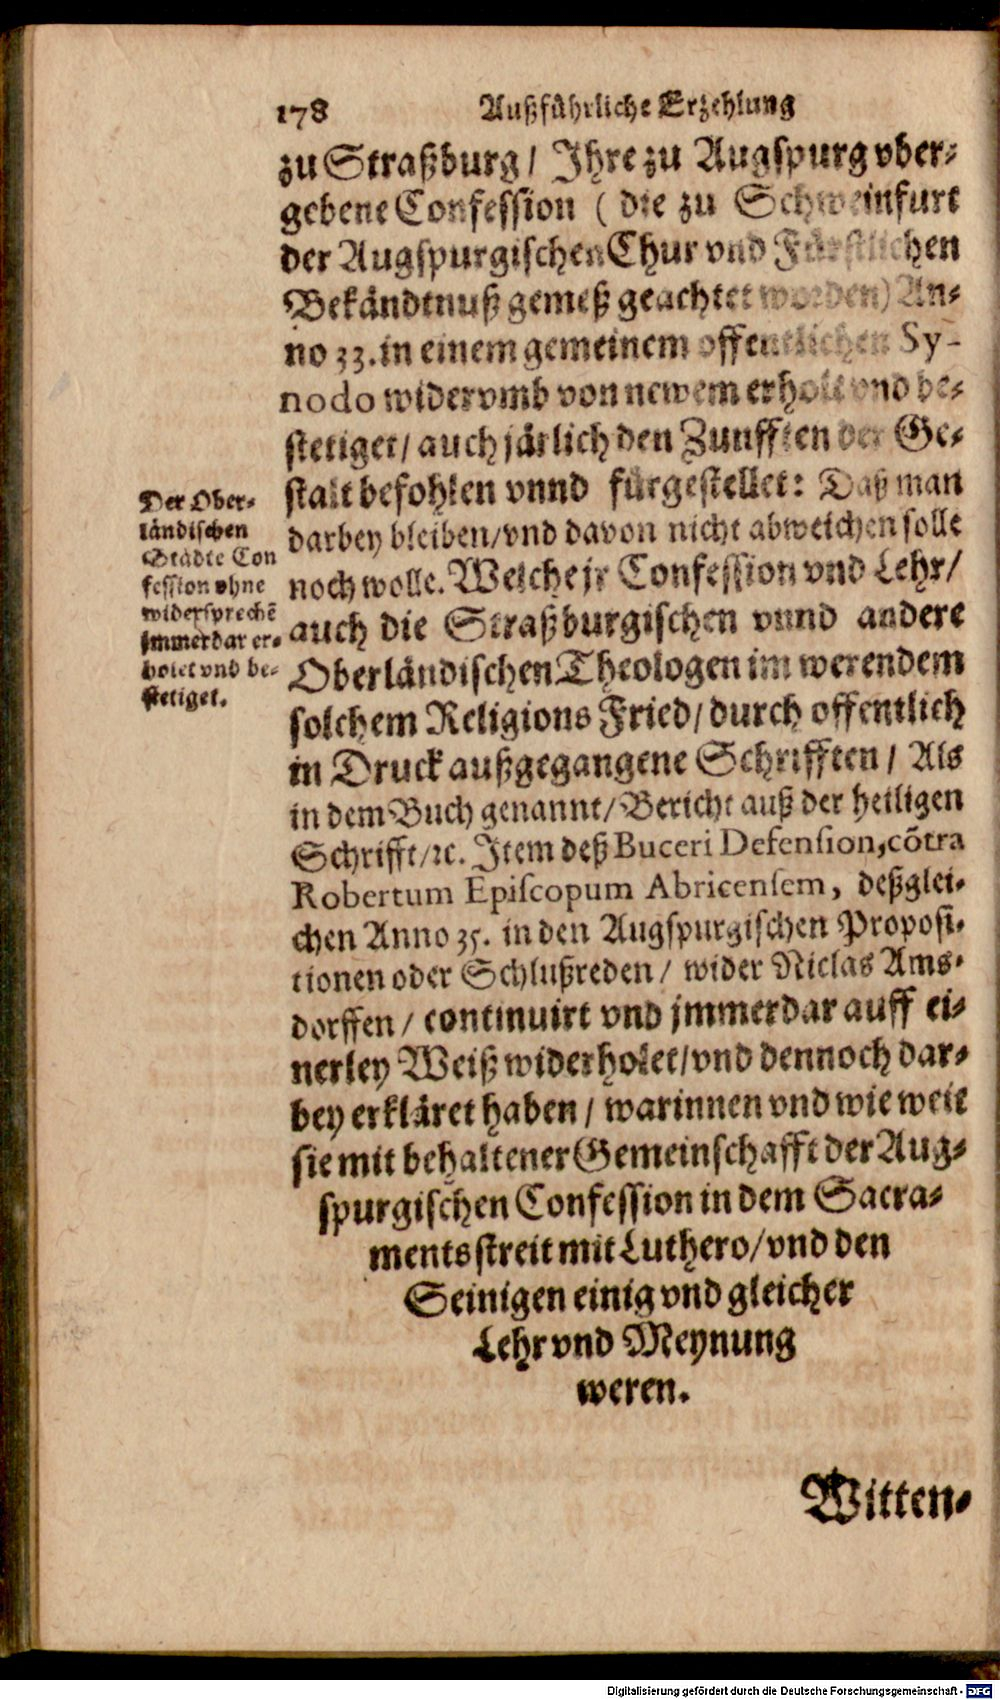 178 Außführliche Erzehlung
zu Straßburg / Ihre zu Augspurg vber-
gebene Confession ( die zu Schweinfurt
der Augspurgischen Chur vnd Fürstlichen
Bekändtnuß gemeß geachtet worden) An-
no 33. in einem gemeinem offentlichen Sy-
nodo widervmb von newem erholt vnd be-
stetiget / auch järlich den Zunfften der Ge-
stalt befohlen vnnd fürgestellet: Daß man
darbey bleiben / vnd davon nicht abweichen solle
noch wolle. Welche jr Confession vnd Lehr /
auch die Straßburgischen vnnd andere
Oberländischen Theologen im werendem
solchem Religions Fried / durch offentlich
in Druck außgegangene Schrifften / Als
in dem Buch genannt / Bericht auß der heiligen
Schrifft / ꝛc. Item deß Buceri Defension, cõtra
Robertum Episcopum Abricensem, deßglei-
chen Anno 35. in den Augspurgischen Proposi-
tionen oder Schlußreden / wider Niclas Ams-
dorffen / continuirt vnd jmmerdar auff ei-
nerley Weiß widerholet / vnd dennoch dar-
bey erkläret haben / warinnen vnd wie weit
sie mit behaltener Gemeinschafft der Aug-
spurgischen Confession in dem Sacra-
ments streit mit Luthero / vnd den
Seinigen einig vnd gleicher
Lehr vnd Meynung
weren.
Der Ober-
ländischen
Städte Con
fession ohne
widersprechẽ
jmmerdar er-
holet vnd be-
stetiget.
Witten-
Digitalisierung gefördert durch die Deutsche Forschungsgemeinschaft - DFG